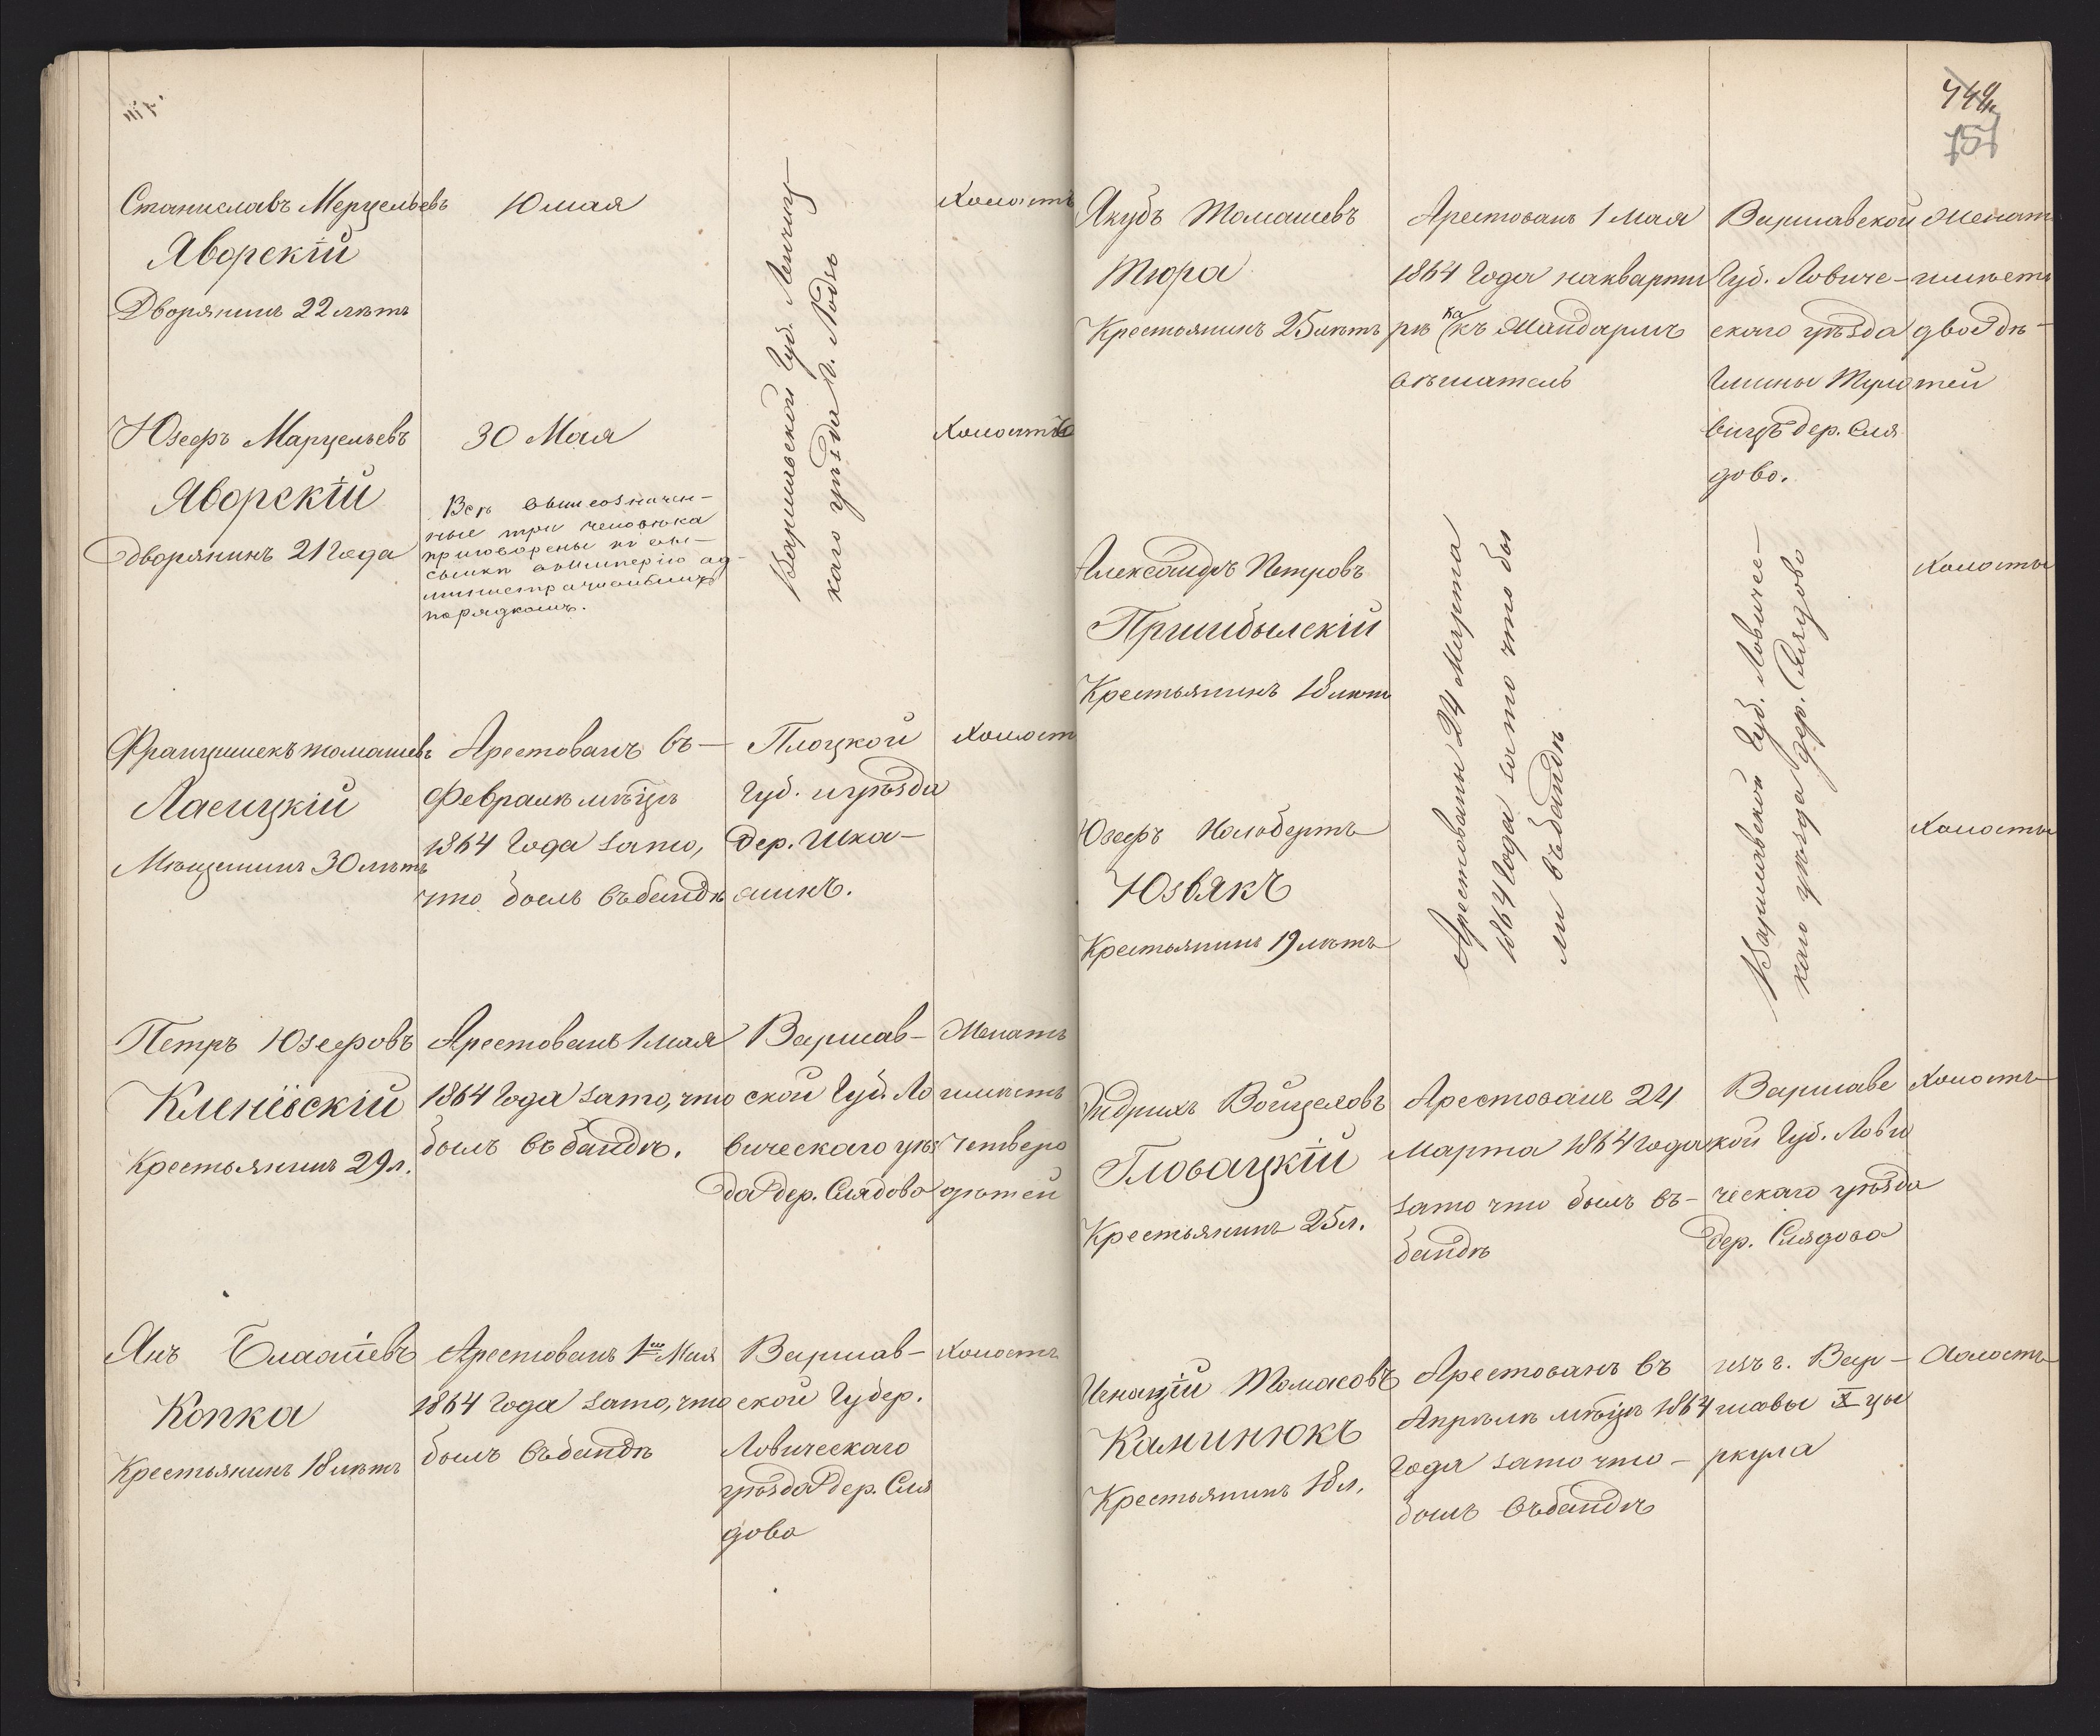 Станиславъ Мерцельевъ
Яворскій
Дворянинъ 22 лѣтъ
10 мая
Варшавской Губ. Ленчиц-
каго уѣзда г. Лодзь
Холостъ
Юзефъ Марцельевъ
Яворскій
Дворянинъ 21 года
30 Мая
Всѣ вышеозначен-
ные три человѣка
приговорены къ вы-
сылкѣ въ Имперію ад-
министративнымъ
порядкомъ.
Холостъ
Францишекъ томашевъ
Ласицкій
Мѣщанинъ 30 лѣтъ
Арестованъ въ-
Февралѣ мѣцѣ
1864 Года зато,
что былъ въбандѣ
Плоцкой
Губ. и уѣзда
дер. Шка-
Холост
Петръ Юзефовъ
Кленіовскій
Крестьянинъ 29 л.
Арестованъ 1 мая
1864 Года зато, что
былъ въ бандѣ.
Варшав-
ской Губ. Ло
вическаго уѣз
да дер. Слядово
Женатъ
имѣетъ
четверо
дѣтей
Янъ
Копка
Крестьянинъ 18 лѣтъ
Арестованъ 1го Мая
1864 Года зато, что
былъ въбандѣ
Варшав-
ской Губер.
Ловическаго
уѣзда дер. Сля
дово
Холостъ
449
751
Якубъ Томашевъ
Тюра
Крестьянинъ 25 лѣтъ
Арестованъ 1 Мая
1864 Года накварти
рѣ какъ Жандармъ
вѣшатель
Варшавской
Губ. Ловиче-
скаго уѣзда
Гмины Туло
вицъ дер. Сля
дово.
Женат
имѣетъ
двое дѣ-
тей
Александръ Петровъ
Пришибылскій
Крестьянинъ 18 лѣтъ
Арестованы 24 Марта
1864 Года зато что бы
ли въбандѣ
Варшавской Губ. Ловичес-
каго уѣзда дер. Слядово
Холостъ
Юзефъ
Юзвякъ
Крестьянинъ 19 лѣтъ
Холостъ
Войцеховъ
Гловацкій
Крестьянинъ 25 л.
Арестованъ 24
Марта 1864 года
зато что былъ въ-
бандѣ
Варшавс
кой Губ. Лови
ческаго уѣзда
дер. Слядово
Холостъ
Игнацій Томасовъ
Каминюкъ
Крестьянинъ 18 л.
Арестованъ въ
Апрѣлѣ мѣцѣ 1864
Года зато что-
былъ въбандѣ
изъ г. Вар-
шавы X цы
ркула
Холостъ